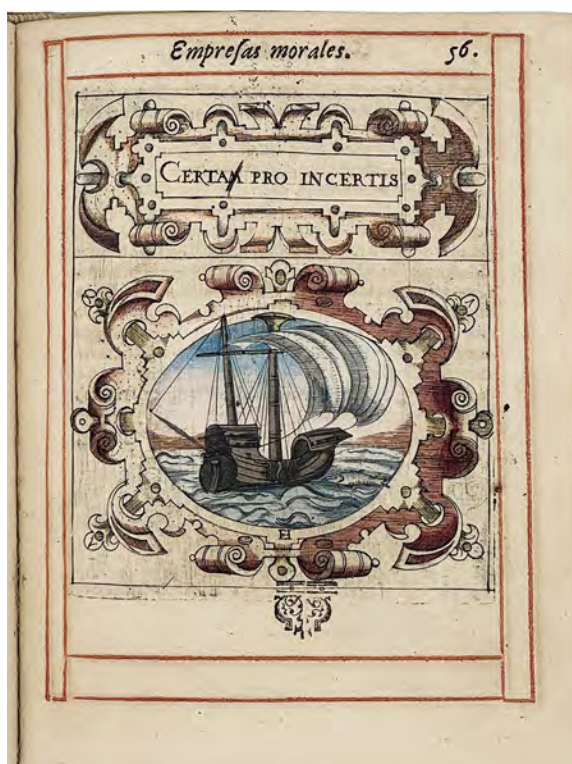 Empreſas morales. 56.
CERTAM PRO INCERTIS
H